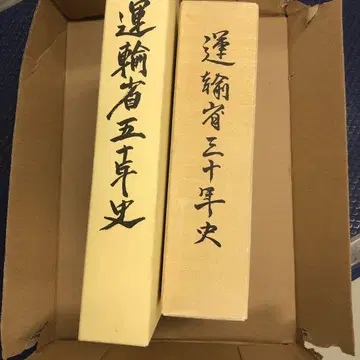 運輸省五十年史
運輸省三十年史